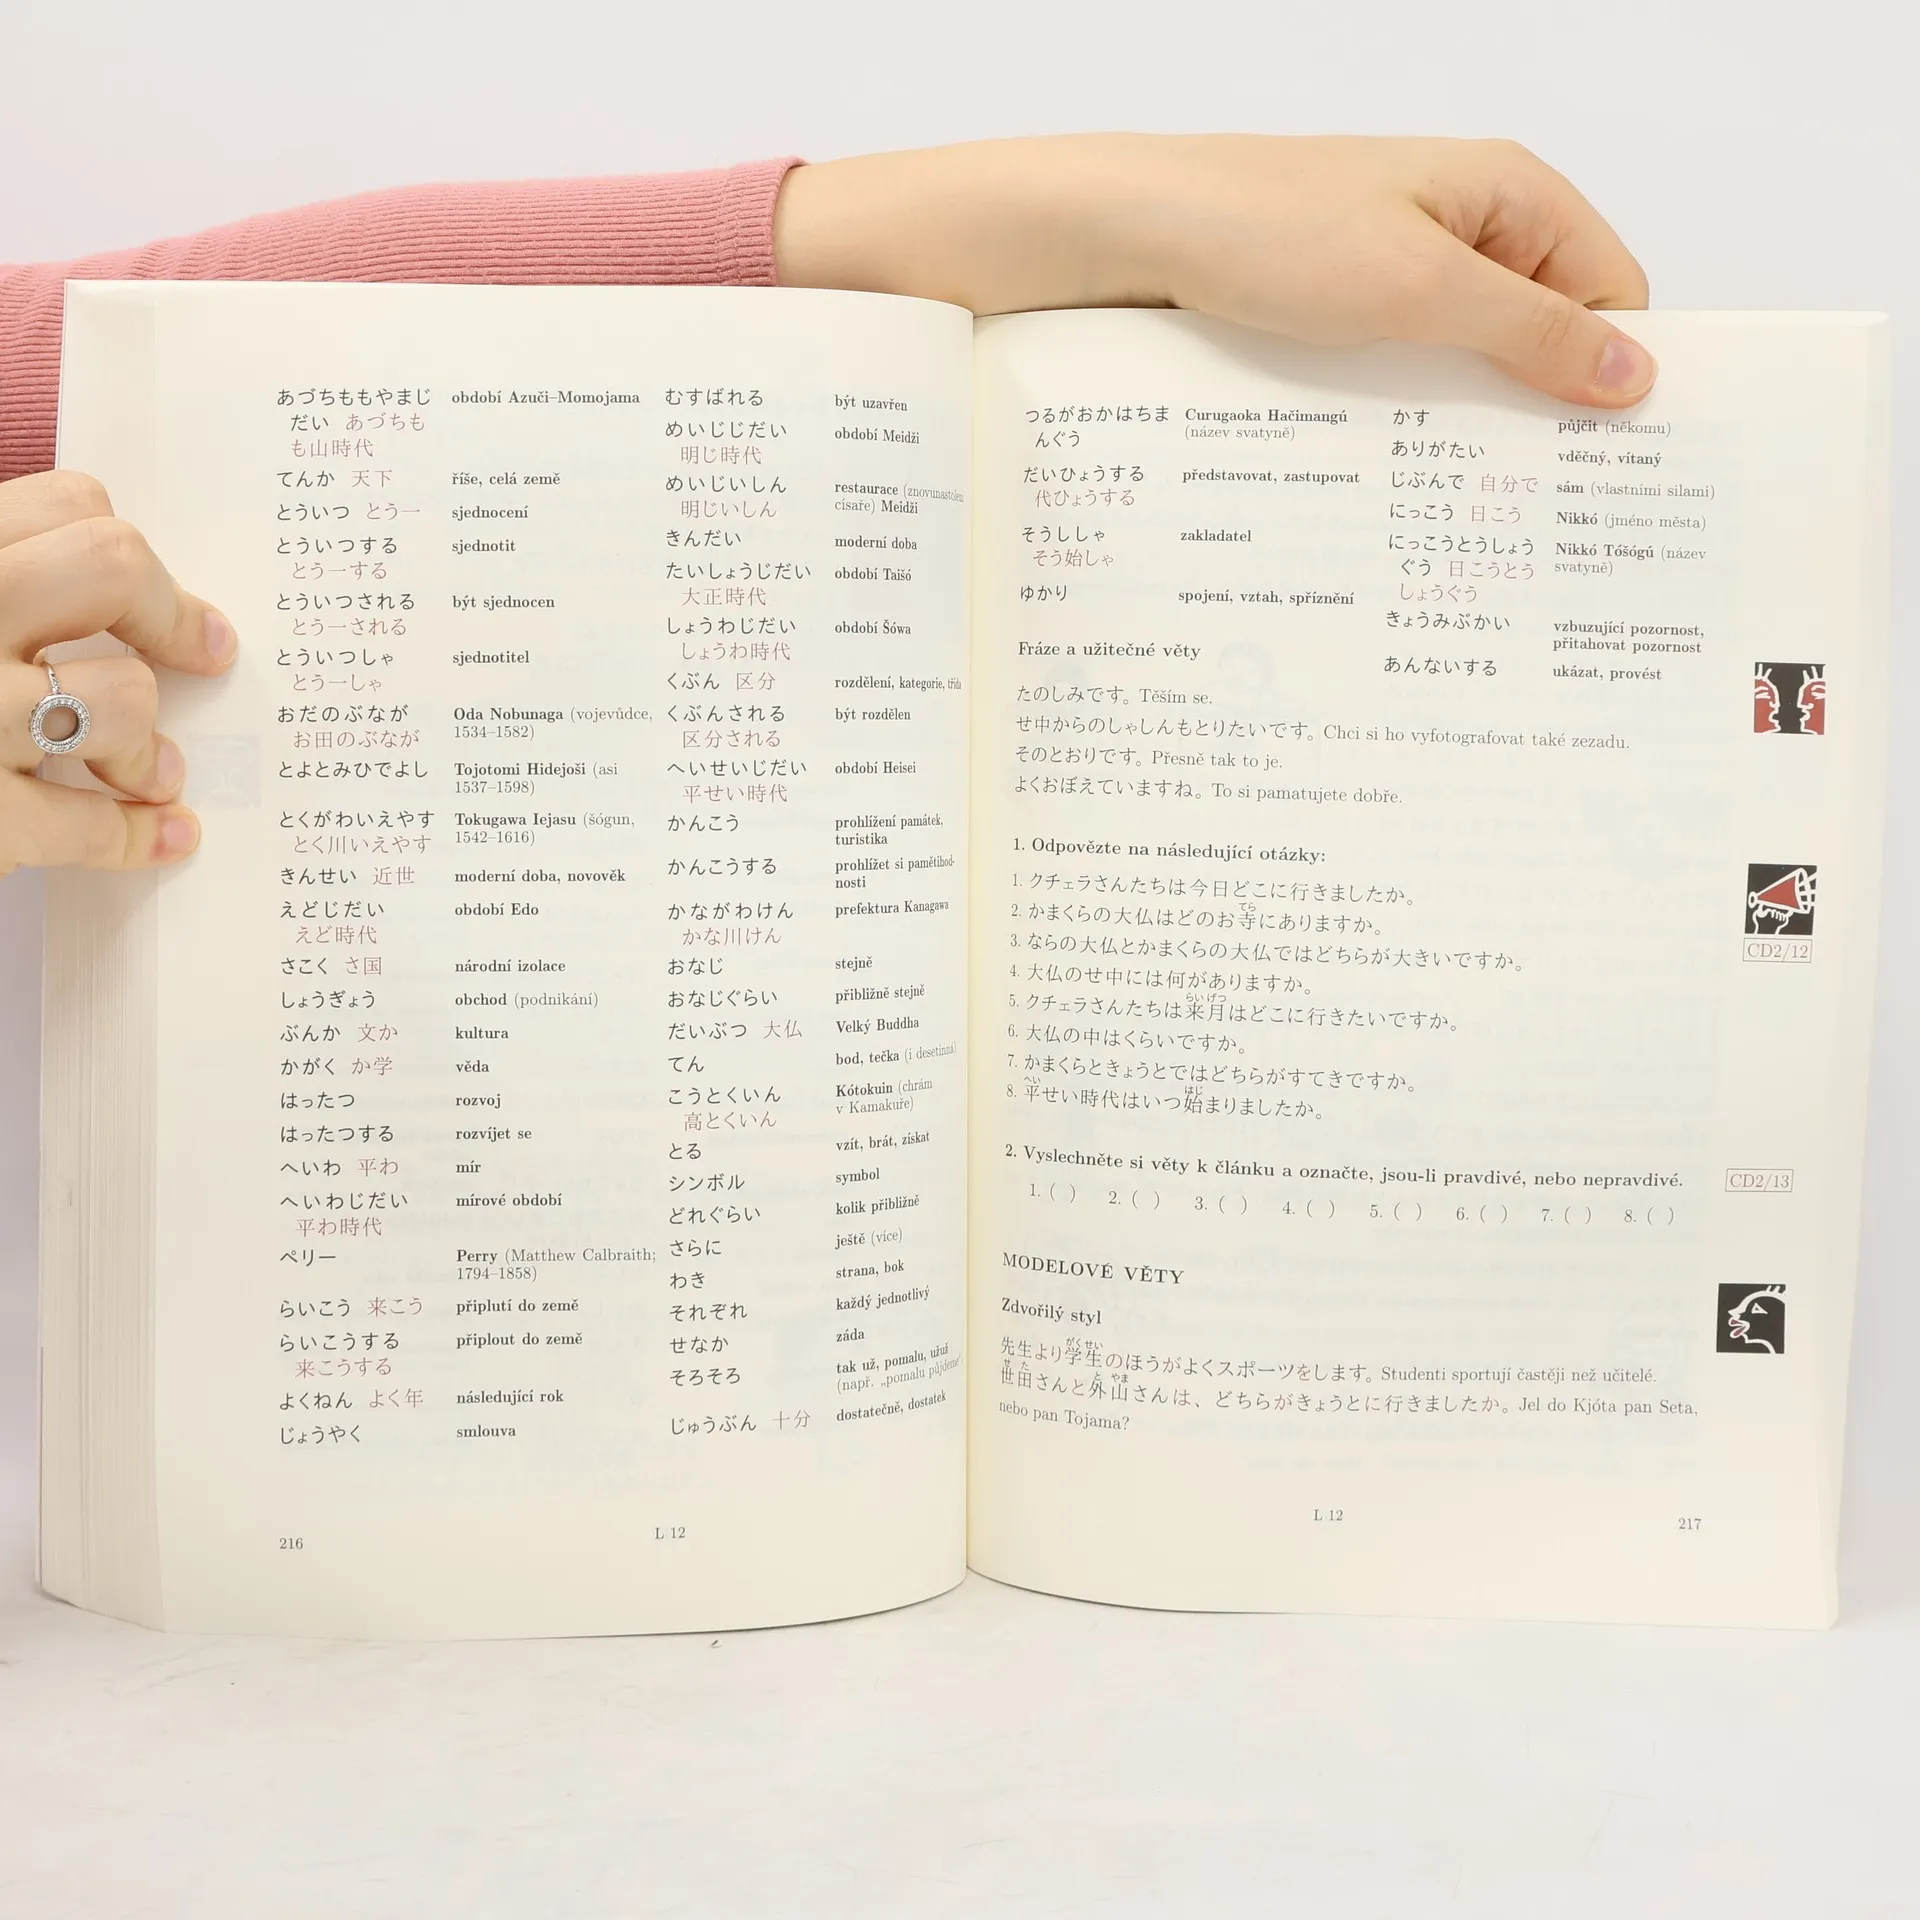 あづちももやまじ　období Azuči–Momojama
だい　あづちも
も山時代
てんか　天下　říše, celá země
とういつ　とう一　sjednocení
とういつする　sjednotit
とう一する
とういつされる　být sjednocen
とう一される
とういつしゃ　sjednotitel
とう一しゃ
おだのぶなが　Oda Nobunaga (vojevůdce,
お田のぶなが　1534–1582)
とよとみひでよし　Tojotomi Hidejoši (asi
1537–1598)
とくがわいえやす　Tokugawa Iejasu (šógun,
とく川いえやす　1542–1616)
きんせい　近世　moderní doba, novověk
えどじだい　období Edo
えど時代
さこく　さ国　národní izolace
しょうぎょう　obchod (podnikání)
ぶんか　文か　kultura
かがく　か学　věda
はったつ　rozvoj
はったつする　rozvíjet se
へいわ　平わ　mír
へいわじだい　mírové období
平わ時代
ペリー　Perry (Matthew Calbraith;
1794–1858)
らいこう　来こう　připlutí do země
らいこうする　připlout do země
来こうする
よくねん　よく年　následující rok
じょうやく　smlouva
むすばれる　být uzavřen
めいじじだい　období Meidži
明じ時代
めいじいしん　restaurace (znovunastolení
明じいしん　císaře) Meidži
きんだい　moderní doba
たいしょうじだい　období Taišó
大正時代
しょうわじだい　období Šówa
しょうわ時代
くぶん　区分　rozdělení, kategorie, třída
くぶんされる　být rozdělen
区分される
へいせいじだい　období Heisei
平せい時代
かんこう　prohlížení památek,
turistika
かんこうする　prohlížet si pamětihod-
nosti
かながわけん　prefektura Kanagawa
かな川けん
おなじ　stejně
おなじぐらい　přibližně stejně
だいぶつ　大仏　Velký Buddha
てん　bod, tečka (i desetinná)
こうとくいん　Kótokuin (chrám
高とくいん　v Kamakuře)
とる　vzít, brát, získat
シンボル　symbol
どれぐらい　kolik přibližně
さらに　ještě (více)
わき　strana, bok
それぞれ　každý jednotlivý
せなか　záda
そろそろ　tak už, pomalu, užuž
(např. „pomalu půjdeme“)
じゅうぶん　十分　dostatečně, dostatek
216
L 12
つるがおかはちま　Curugaoka Hačimangú
んぐう　(název svatyně)
だいひょうする　představovat, zastupovat
代ひょうする
そうししゃ　zakladatel
そう始しゃ
ゆかり　spojení, vztah, spříznění
かす　půjčit (někomu)
ありがたい　vděčný, vítaný
じぶんで　自分で　sám (vlastními silami)
にっこう　日こう　Nikkó (jméno města)
にっこうとうしょう　Nikkó Tóšógú (název
ぐう　日こうとう　svatyně)
しょうぐう
きょうみぶかい　vzbuzující pozornost,
přitahovat pozornost
あんないする　ukázat, provést
Fráze a užitečné věty
たのしみです。Těším se.
せ中からのしゃしんもとりたいです。Chci si ho vyfotografovat také zezadu.
そのとおりです。Přesně tak to je.
よくおぼえていますね。To si pamatujete dobře.
1. Odpovězte na následující otázky:
CD2/12
1. クチェラさんたちは今日どこに行きましたか。
てら
2. かまくらの大仏はどのお寺にありますか。
3. ならの大仏とかまくらの大仏ではどちらが大きいですか。
4. 大仏のせ中には何がありますか。
らいげつ
5. クチェラさんたちは来月はどこに行きたいですか。
6. 大仏の中はくらいですか。
7. かまくらときょうとではどちらがすてきですか。
へい　はじ
8. 平せい時代はいつ始まりましたか。
2. Vyslechněte si věty k článku a označte, jsou-li pravdivé, nebo nepravdivé.
CD2/13
1. ( )　2. ( )　3. ( )　4. ( )　5. ( )　6. ( )　7. ( )　8. ( )
MODELOVÉ VĚTY
Zdvořilý styl
がくせい
先生より学生のほうがよくスポーツをします。Studenti sportují častěji než učitelé.
せた　とやま
世田さんと外山さんは、どちらがきょうとに行きましたか。Jel do Kjóta pan Seta,
nebo pan Tojama?
L 12
217